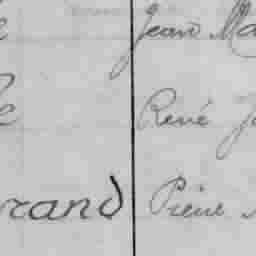 Jean Ma
René J
rand Pierre